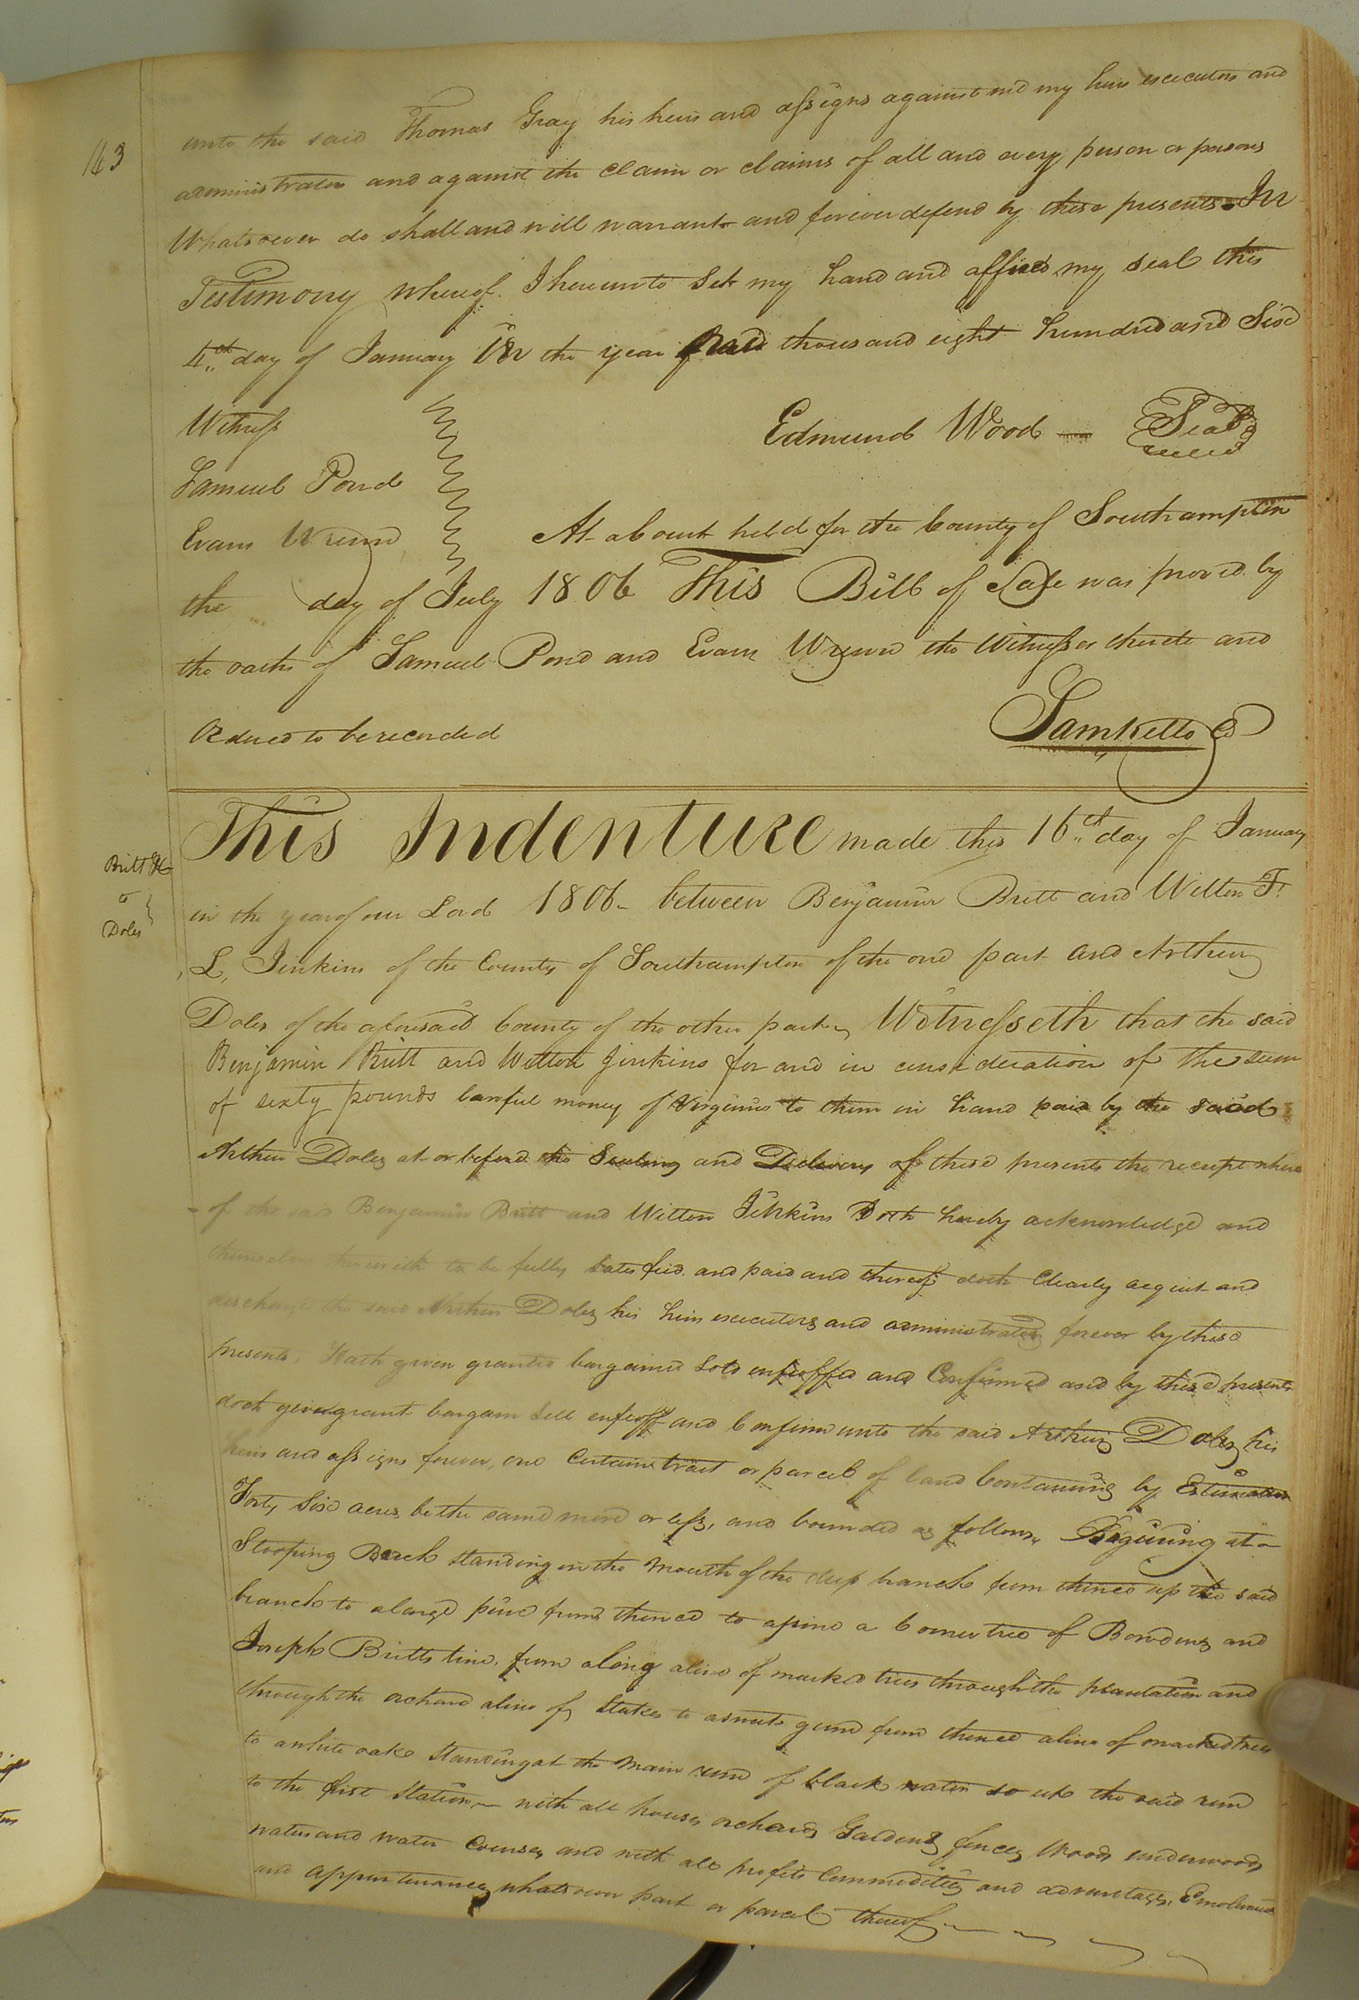 163
unto the said Thomas Gray his heirs and assigns against me my heirs executors and
administrators and against the claim or claims of all and every person or persons
Whatsoever do shall and will warrant and forever defend by these presents In
Testimony whereof I hereunto Set my hand and affixed my seal this
4th day of January In the year thousand eight hundred and Six
Witness
Edmund Wood Seal
Samuel Pond
Evans Wrenn At a Court held for the County of Southampton
the day of July 1806 This Bill of Sale was proved by
the oaths of Samuel Pond and Evans Wrenn the Witnesses thereto and
Ordered to be recorded
Sam Kello CC
Britt &c
to
Doles
This Indenture made this 16th day of January
in the year of our Lord 1806 between Benjamin Britt and Wilton F.
L. Jinkins of the County of Southampton of the one part and Arthur
Doles of the aforesaid County of the other part Witnesseth that the said
Benjamin Britt and Wilton Jinkins for and in consideration of the sum
of sixty pounds lawful money of Virginia to them in hand paid by the said
Arthur Doles at or before the Sealing and Delivery of these presents the receipt where
of the said Benjamin Britt and Wilton Jinkins Doth hereby acknowledge and
themselves therewith to be fully satisfied and paid and thereof doth Clearly acquit and
discharge the said Arthur Doles his heirs executors and administrators forever by these
presents, Hath given granted bargained Sold enfeoffed and Confirmed and by these presents
doth give grant bargain Sell enfeoff and Confirm unto the said Arthur Doles his
heirs and assigns forever, one Certain tract or parcel of land Containing by Estimation
Forty Six acres be the same more or less, and bounded as follows, Begining at a
Stooping Beech standing in the mouth of the deep branch from thence up the said
branch to a large pine from thence to a pine a Corner tree of Bowdens and
Joseph Britts line, from along a line of marked trees through the plantation and
through the orchard a line of Stakes to a sweet gum from thence a line of marked trees
to a white oak Standing at the main run of black water so up the said run
to the first Station, with all houses orchards Gardens fences Woods underwoods
waters and water Courses and with all profits Commodities and advantages, Emoluments
and appurtenances whatsoever part or parcel thereof